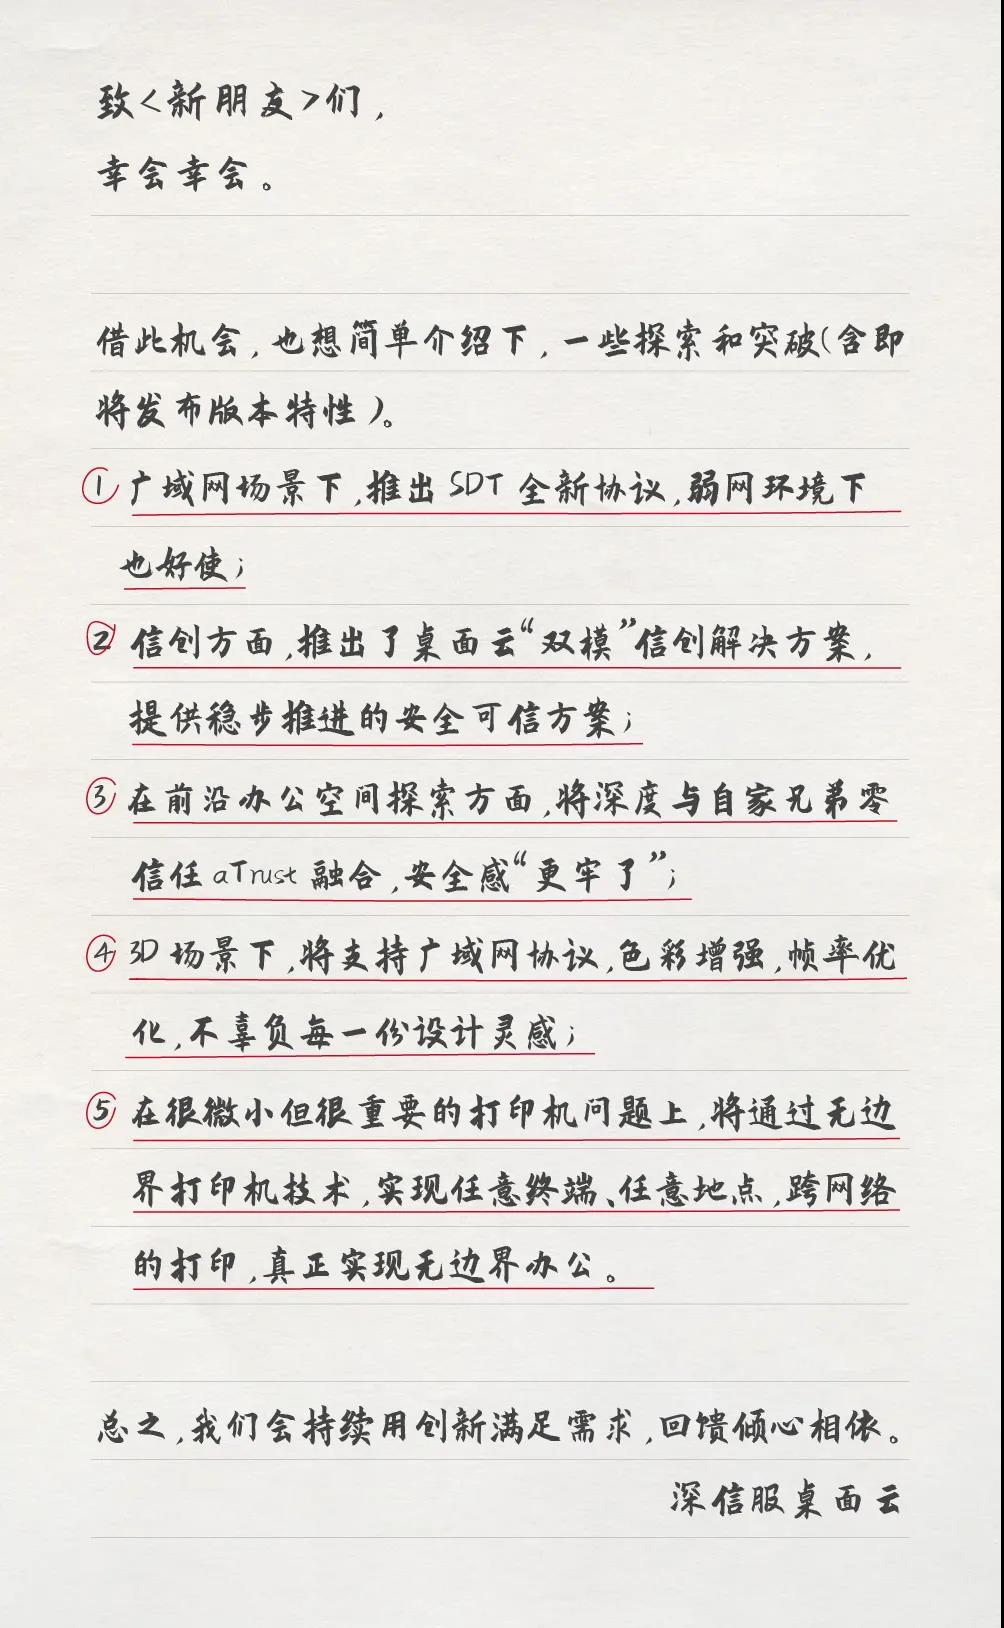 致<新朋友>们，
幸会幸会。
借此机会，也想简单介绍下，一些探索和突破(含即
将发布版本特性)。
① 广域网场景下，推出 SDT 全新协议，弱网环境下
也好使；
② 信创方面，推出了桌面云“双模”信创解决方案，
提供稳步推进的安全可信方案；
③ 在前沿办公空间探索方面，将深度与自家兄弟零
信任 aTrust 融合，安全感“更牢了”；
④ 3D 场景下，将支持广域网协议，色彩增强，帧率优
化，不辜负每一份设计灵感；
⑤ 在很微小但很重要的打印机问题上，将通过无边
界打印机技术，实现任意终端、任意地点，跨网络
的打印，真正实现无边界办公。
总之，我们会持续用创新满足需求，回馈倾心相依。
深信服桌面云